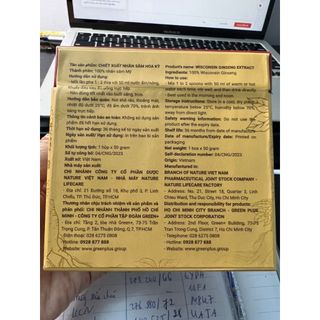 Tên sản phẩm: CHIẾT XUẤT NHÂN SÂM HOA KỲ
Thành phần: 100% nhân sâm Mỹ
Hướng dẫn sử dụng:
- Mỗi lần pha 1 - 2 thìa với 50 ml nước
- Nên dùng tốt nhất vào buổi sáng, trưa.
Hướng dẫn bảo quản: Nơi khô ráo, thoáng mát,
nhiệt độ dưới 25°C, độ ẩm dưới 70%, tránh ánh
sáng trực tiếp.
Thông tin cảnh báo an toàn: Không sử dụng sản
phẩm đã hết hạn sử dụng.
Thời hạn sử dụng: 36 tháng kể từ ngày sản xuất
Ngày sản xuất/ Hạn sử dụng: in trên bao bì sản
phẩm
Khối lượng tịnh: 1 hộp x 50 gram
Số tự công bố: 04/CNG/2023
Xuất xứ: Việt Nam
Nhà sản xuất:
CHI NHÁNH CÔNG TY CỔ PHẦN DƯỢC
NATURE VIỆT NAM - NHÀ MÁY NATURE
LIFECARE
- Địa chỉ: 21 Đường số 18, Khu phố 3, P. Linh
Chiểu, TP. Thủ Đức, TP.HCM
Thương nhân chịu trách nhiệm về sản phẩm và
phân phối: CHI NHÁNH THÀNH PHỐ HỒ CHÍ
MINH - CÔNG TY CỔ PHẦN TẬP ĐOÀN GREEN+
- Địa chỉ: Tầng 2, tòa nhà Green+, 73-75 Trần
Trọng Cung, P. Tân Thuận Đông, Q.7, TP.HCM
- Điện thoại: 028 6275 0808
- Hotline: 0928 877 888
- Website: www.greenplus.group
Products name: WISCONSIN GINSENG EXTRACT
Ingredients: 100% Wisconsin Ginseng
How to use:
- Mix 1 - 2 spoons with 50 ml of warm or hot
directly
- Best used in the morning and noon.
Storage instructions: Store in a cool, dry place,
temperature below 25°C, humidity below 70%,
away from direct light.
Safety warning information: Do not use the
product after the expiry date.
Shelf life: 36 months from date of manufacture
Date of manufacture/Expiry date: Printed on
packaging
Net weight: 1 box x 50 gram
Self-declaration number: 04/CNG/2023
Origin: Vietnam
Manufacturer:
BRANCH OF NATURE VIET NAM
PHARMACEUTICAL JOINT STOCK COMPANY -
NATURE LIFECARE FACTORY
- Address: No. 21, Street 18, Quarter 3, Linh
Chieu Ward, Thu Duc City, Ho Chi Minh City
Distribution and responsibility for products:
HO CHI MINH CITY BRANCH - GREEN PLUS
JOINT STOCK CORPORATION
- Address: 2nd Floor, Green+ Building, 73-75
Tran Trong Cung, Tan Thuan Dong Ward, District
7, Ho Chi Minh City
- Telephone: 028-6275-0808
- Hotline: 0928 877 888
- Website: www.greenplus.group